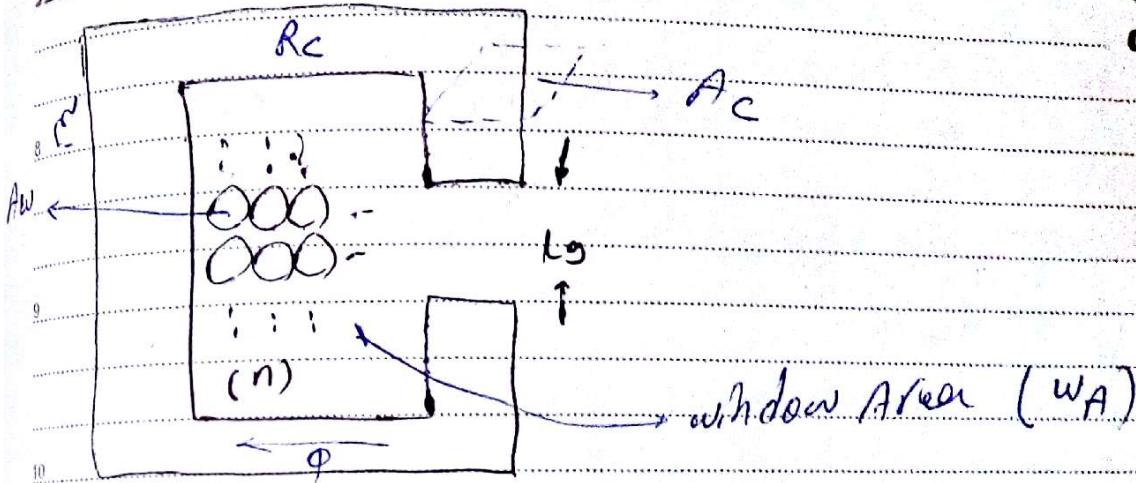 Rc
Ac
8
Aw
lg
9
(n)
window Area (WA)
φ
10